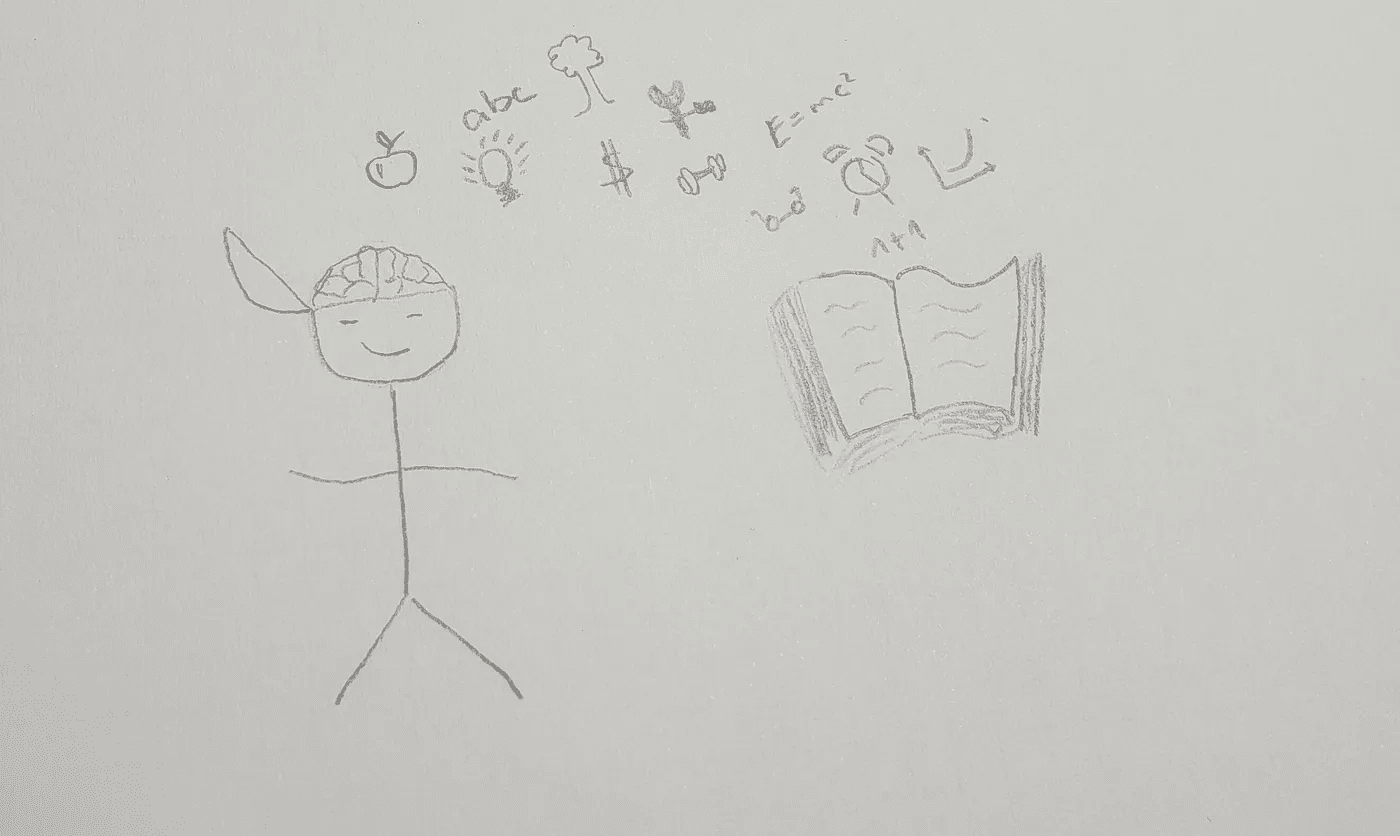 abc
$
E=mc²
1+1